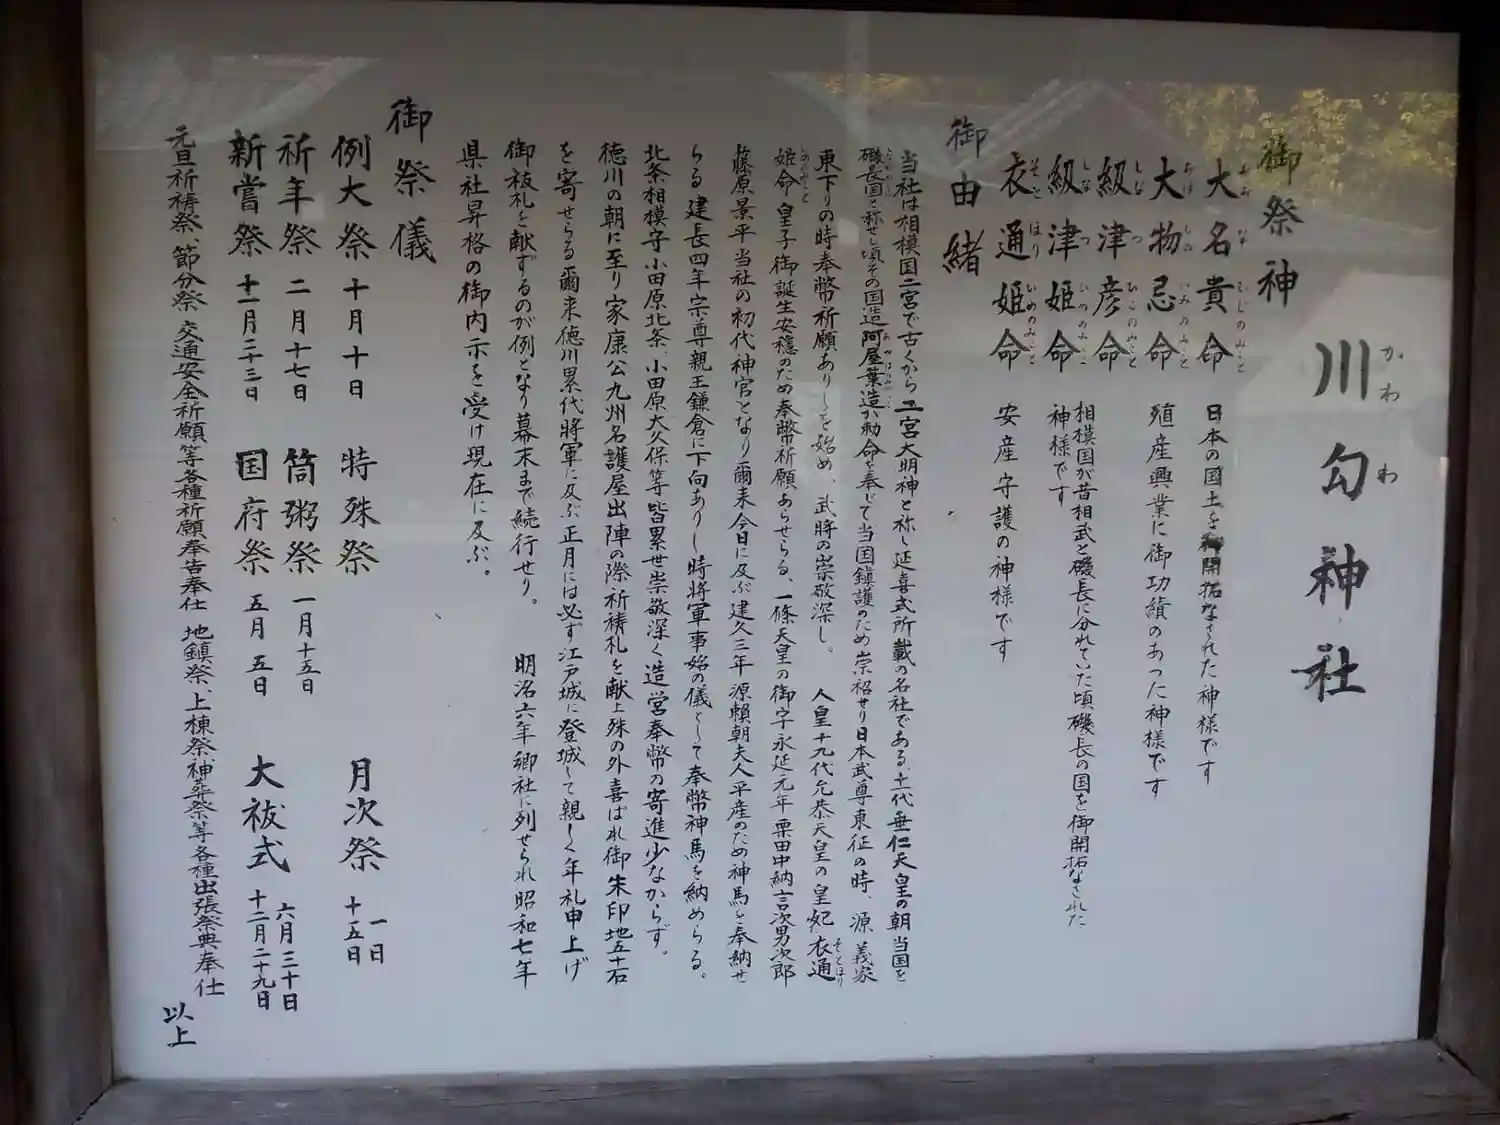 川勾神社
かわ わ
御祭神
大名貴命 日本の国土を御開拓なされた神様です
おおなむじのみこと
大物忌命 殖産興業に御功績のあった神様です
おほものいみのみこと
級津彦命
しなつひこのみこと
級津姫命 相模国が昔相武と磯長に分れていた頃磯長の国を御開拓なされた
神様です
しなつひめのみこと
衣通姫命 安産守護の神様です
そとほりひめのみこと
御由緒
当社は相模国二宮で古くから二宮大明神と称し延喜式所載の名社である、十一代垂仁天皇の朝当国を
磯長国と称せし頃その国造阿屋葉造が勅命を奉じて当国鎮護のため崇祀せり日本武尊東征の時、源義家
東下りの時奉幣祈願ありしを始め、武将の崇敬深し。 人皇十九代允恭天皇の皇妃衣通
姫命皇子御誕生安穏のため奉幣祈願あらせらる、一條天皇の御宇永延元年粟田中納言次男次郎
藤原景平当社の初代神官となり爾来今日に及ぶ建久三年源頼朝夫人平産のため神馬を奉納せ
らる建長四年宗尊親王鎌倉に下向ありし時将軍事始の儀として奉幣神馬を納めらる。
北条相模守小田原北条、小田原大久保等皆累世崇敬深く造営奉幣の寄進少なからず。
徳川の朝に至り家康公九州名護屋出陣の際祈祷札を献上殊の外喜ばれ御朱印地五十石
を寄せらる爾来徳川累代将軍に及ぶ正月には必ず江戸城に登城して親しく年礼申上げ
御祓札を献ずるのが例となり幕末まで続行せり。 明治六年郷社に列せられ昭和七年
県社昇格の御内示を受け現在に及ぶ。
御祭儀
例大祭 十月十日 特殊祭 月次祭 一日 十五日
祈年祭 二月十七日 筒粥祭 一月十五日
新嘗祭 十一月二十三日 国府祭 五月五日 大祓式 六月三十日 十二月二十九日
元旦祈祷祭、節分祭、交通安全祈願等各種祈願奉告奉仕 地鎮祭、上棟祭、神葬祭等各種出張祭典奉仕
以上